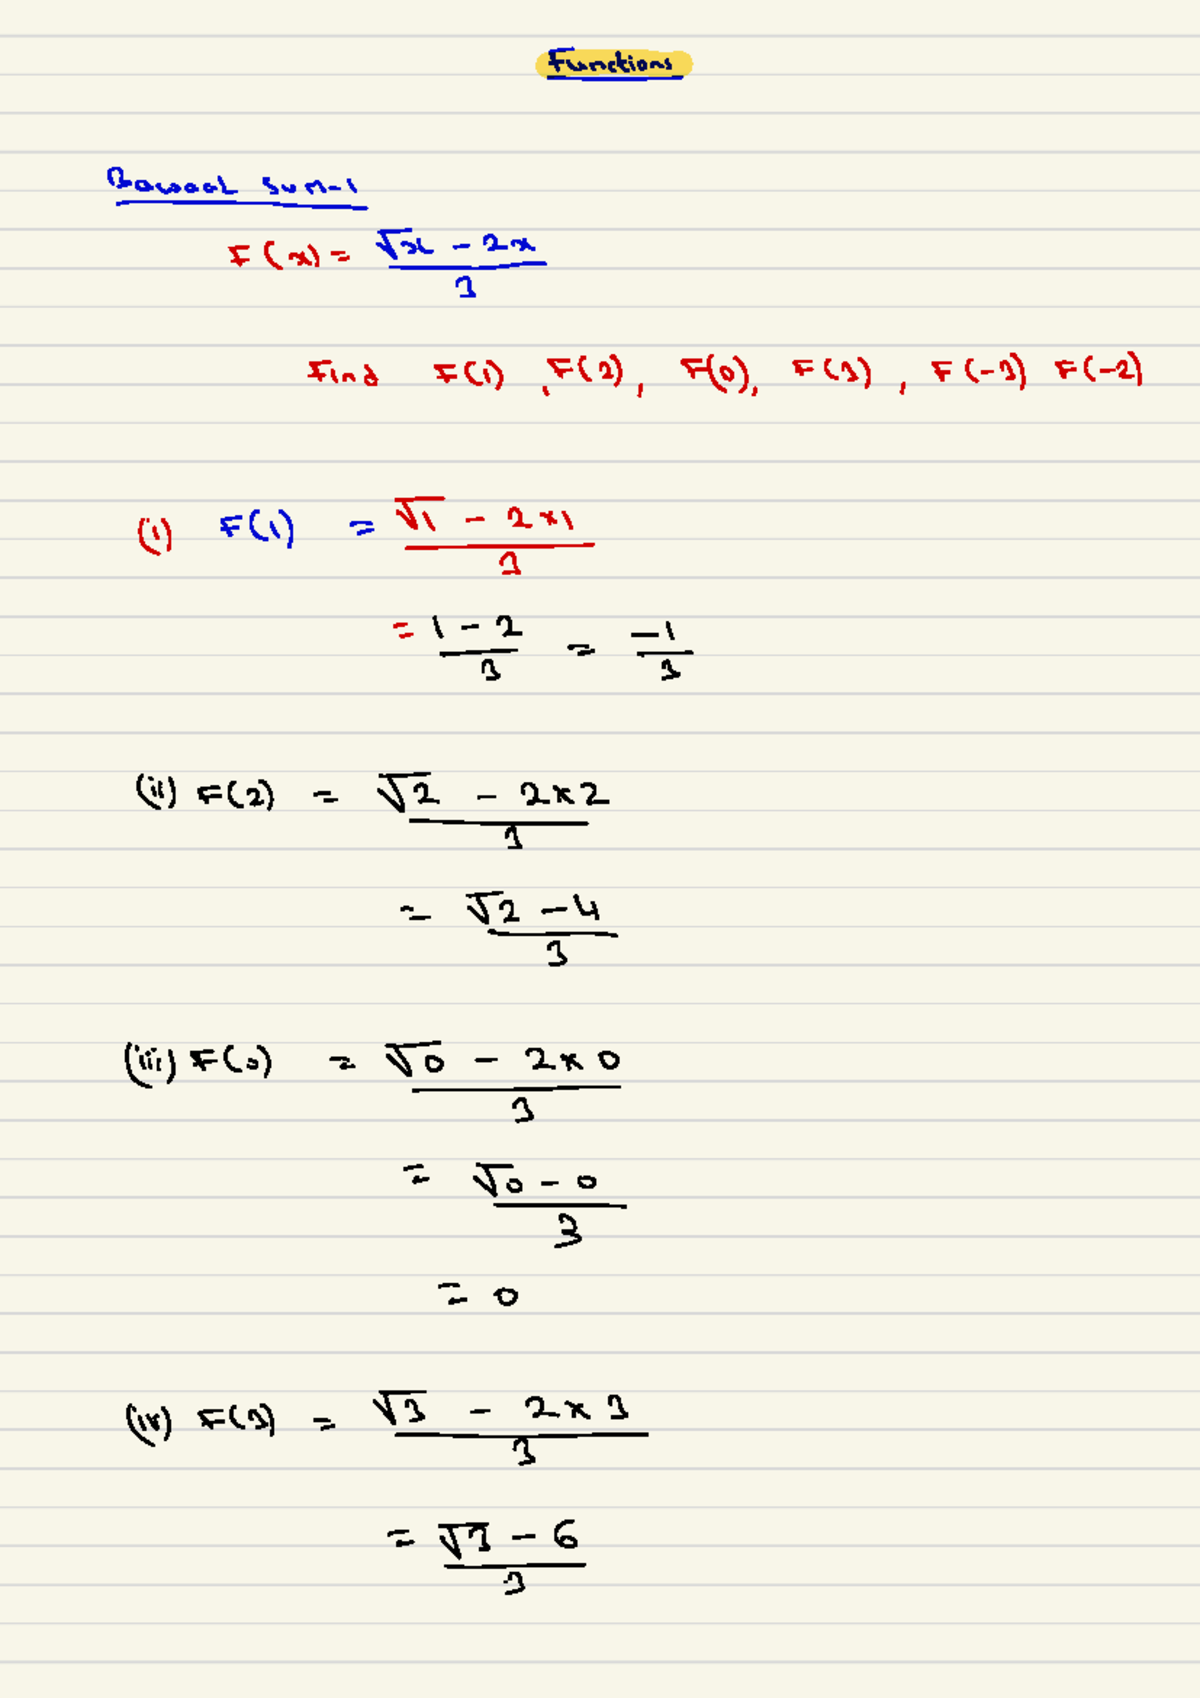 Functions
Bawaal Sum-1
F(x) = √x - 2x / 3
Find F(1), F(2), F(0), F(3), F(-3) F(-2)
(i) F(1) = √1 - 2×1 / 3
= 1 - 2 / 3 = -1 / 3
(ii) F(2) = √2 - 2×2 / 3
= √2 - 4 / 3
(iii) F(0) = √0 - 2×0 / 3
= √0 - 0 / 3
= 0
(iv) F(3) = √3 - 2×3 / 3
= √3 - 6 / 3